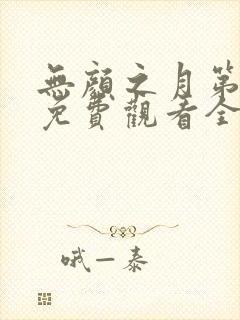 無顏之月第
免費觀看全
哦一泰